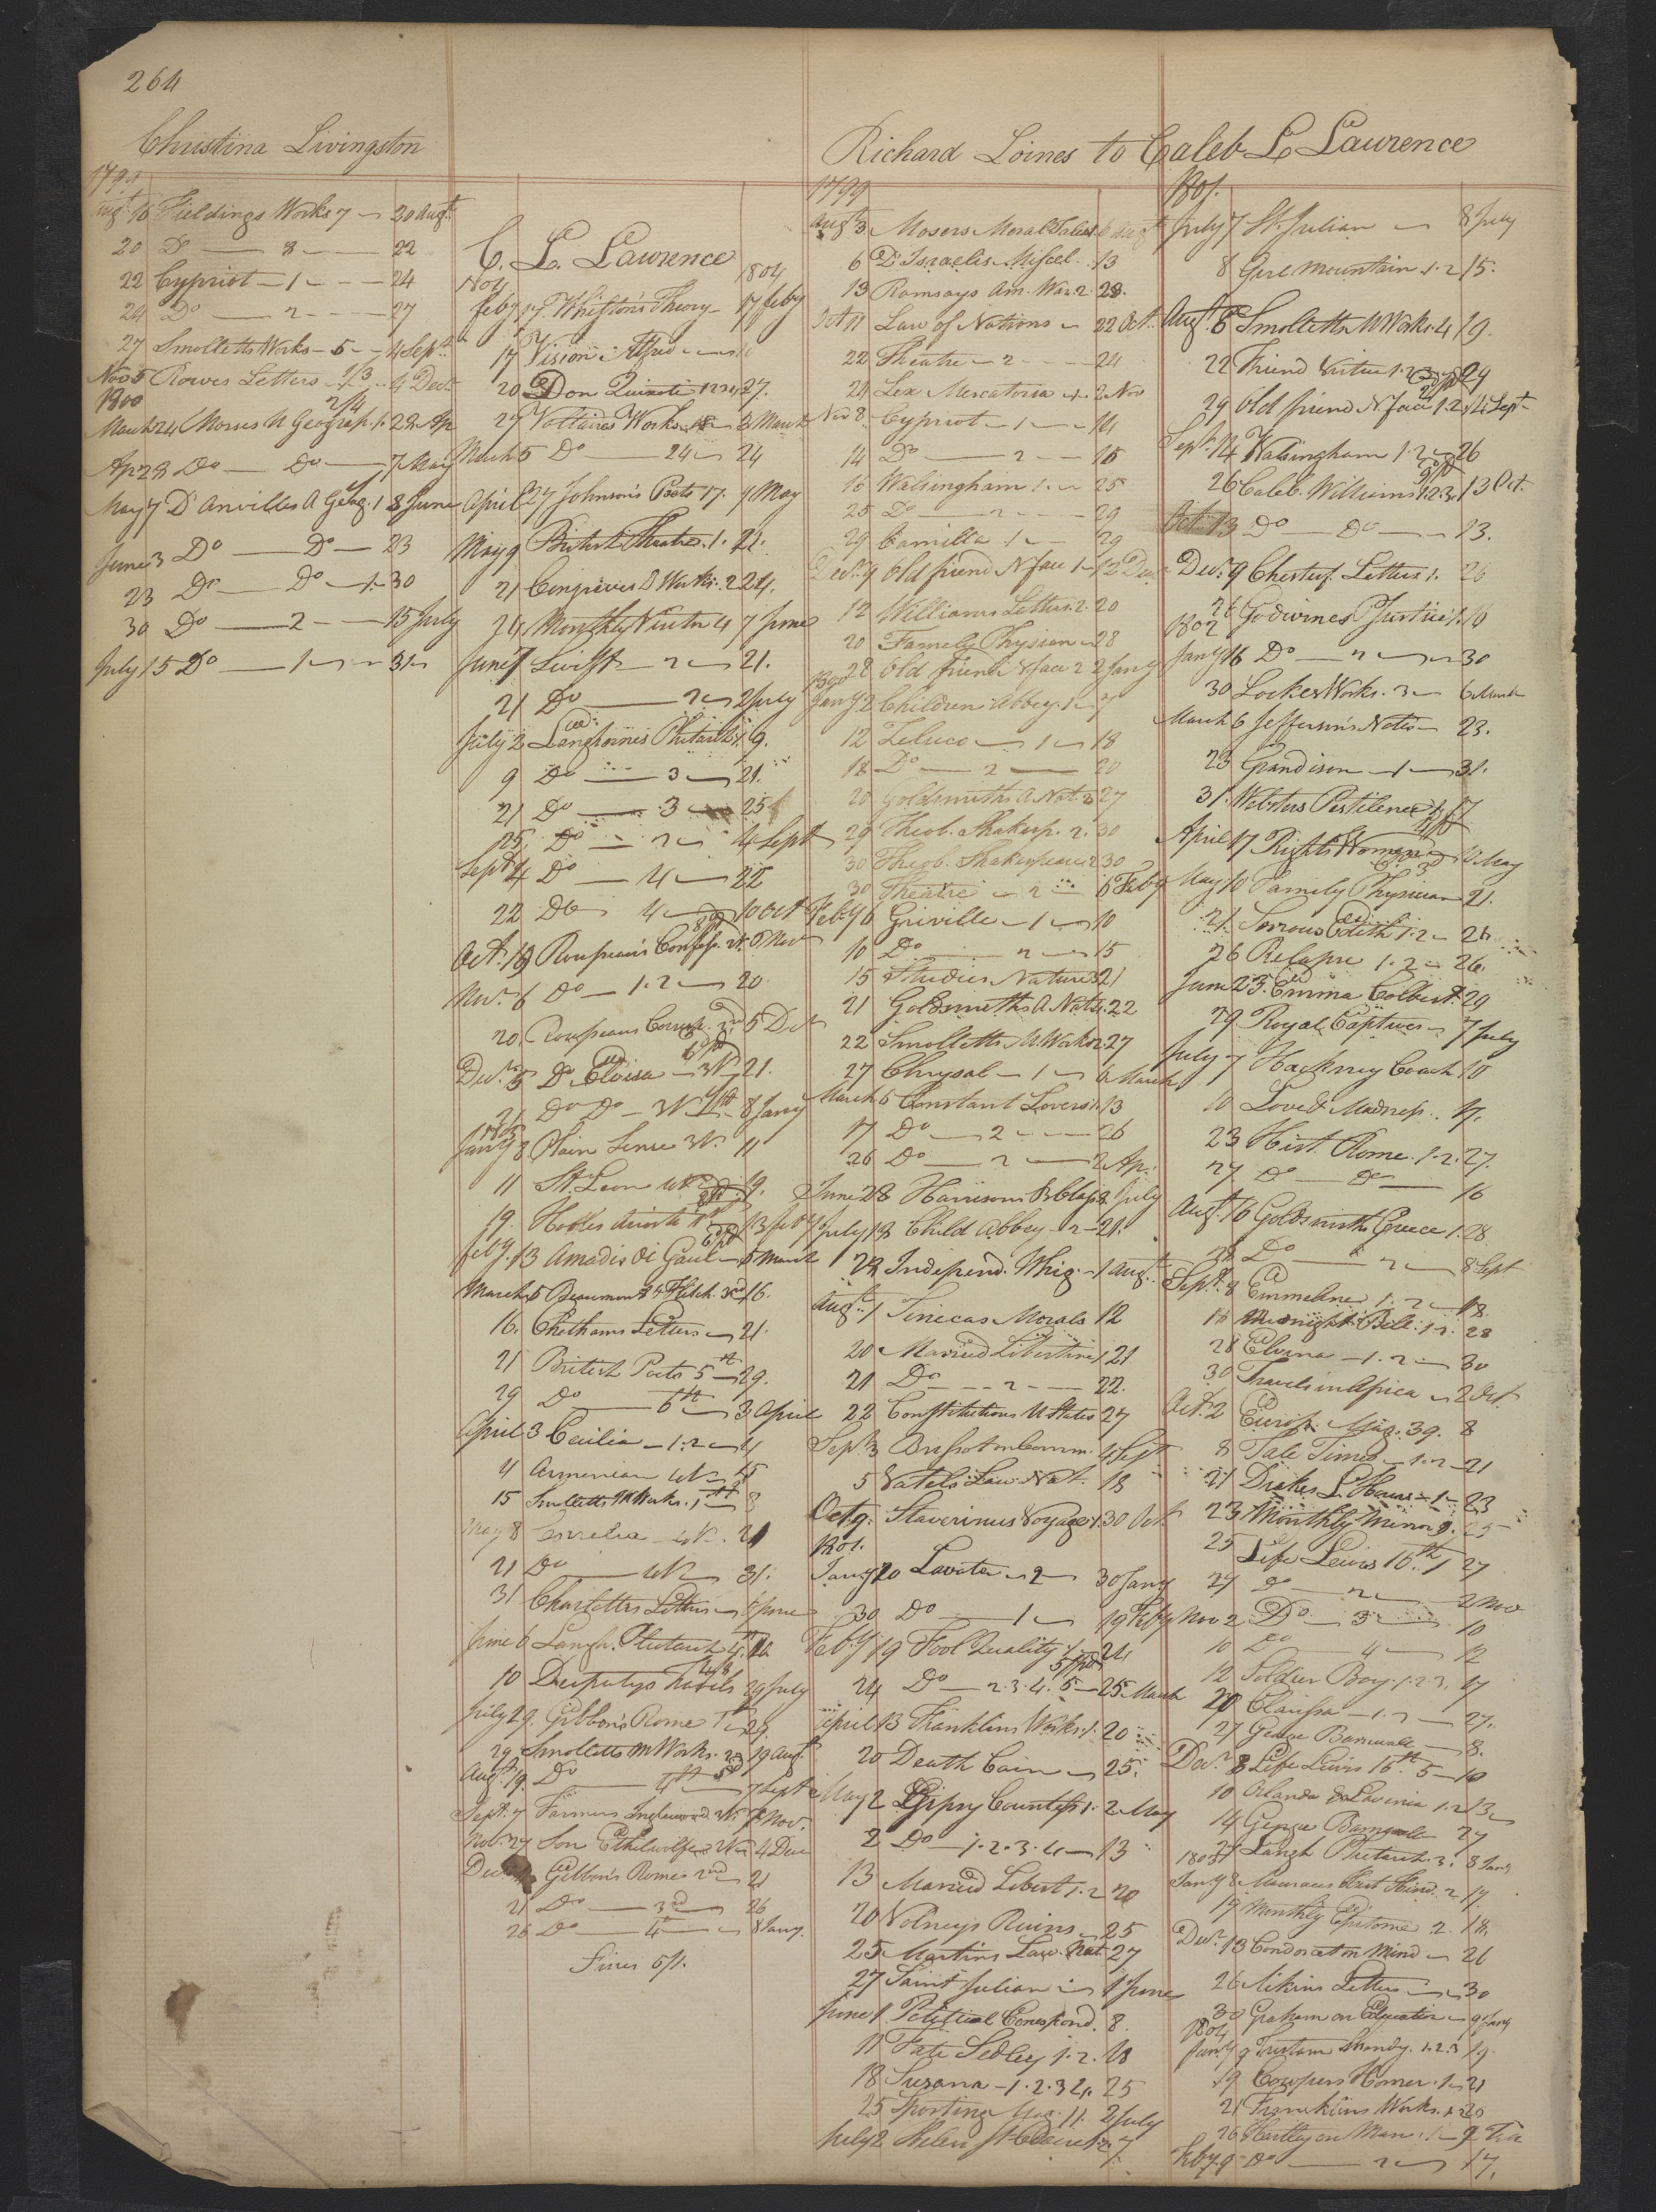 264
Christina Livingston
1799
Augt 16 Fieldings Works 7 20 Augt
20 Do 8 22
22 Cypriot 1 24
24 Do 2 27
27 Smolletts Works 5 4 Sept
Nov 5 Rowes Letters 1/3 4 Decr
1800 2/4
March 24 Morses U Geograp. 1. 28 Ap
Ap 28 Do Do 7 May
May 7 D'Anvilles A Geog. 1 3 June
June 3 Do Do 23
23 Do Do 1. 30
30 Do 2 15 July
July 15 Do 1 31
C. L. Lawrence
1804 1804
Feby 17. Whistons Theory 17 feby
17 Vision Alfred
20 Don Quixote 1.2.3.4 27.
27 Voltaires Works 3 March
March 5 Do 24 24
April 27 Johnson's Poets 17. 9 May
May 9 British Theatre. 1. 21.
21 Congreves D Works. 2 24.
24 Monthly Visitor 4 7 June
June 7 Swift 2 21.
21 Do 2 2 July
July 2 Langhornes Plutarch 1. 9.
9 Do 3 21.
21 Do 3 25
25 Do 2 4 Sept
Sept 4 Do 4 22
22 Do 4 10 Oct
Oct. 19 Rousseau's Confess. 6 Nov
Nov. 6 Do 1.2 20
20 Rousseaus 5 Dec
Decr 5 Do Eloisa 3 V. 21.
21 Do Do 8 Jany
Jany 8 Plain Sense 3 V. 11
11 St. Leon 19.
19. Hooles Ariosto 13 feby
feby. 13 Amadis di Gaul 5 March
March 5 Beaumont & Fletch. 3rd 16.
16. Chathams Letters 21.
21 British Poets 5th 29.
29 Do 6th 3 April
April 3 Cecilia 1.2 4
4 Armenian 15
15 Smolletts M Works. 1st 8
May 8 21
21 Do 31.
31 Charlottes Letters 6 June
June 6 Langh. Plutarch 4. 10
10 29 July
July 29. Gibbon's Rome 1st 29.
29. Smolletts M Works. 2d 19 Augt
Augt. 19. Do 4th 7 Sept
Sept. 7 Farmers Inglewood 7 Nov.
Nov. 27 Son Ethelwolf 4 Decr
Decr 4 Gibbon's Rome 2nd 21
21 Do 3rd 26
26 Do 4 8 Jany.
Fines 5/1.
Richard Loines to Caleb L Lawrence
1799
Augt 3 Mosers Moral Tales. 6 Augt
6 D'Israelis Miscel. 13
13 Ramsays Am. War. 2. 28.
Oct 11 Law of Nations 22 Oct.
22 Theatre 2 24
24 Lex Mercatoria 1. 2 Nov
Nov 8 Cypriot 1 14
14 Do 2 16
16 Walsingham 1. 25
25 Do 2 29
29 Camilla 1 29
Decr 9 Old friend N face 1 12 Dec
12 Williams Letters. 2. 20
20 Family Physician 28
28 Old friend N face 2 2 Jany
1800
Jany 2 Children Abbey. 1 7
12 Zeluco 1 18
18 Do 2 20
20 Goldsmiths A Nat. 3 27
29 Theob. Shakesp. 2. 30
30 Theob. Shakespeare 2 30
30 Theatre 2 6 Feby
Feby 6 Griville 1 10
10 Do 2 15
15 Studies Nature 3 21
21 Goldsmiths A Nat. 22
22 Smolletts M. Works 2 27
27 Chrysal 1 6 March
March 6 Constant Lovers 1. 13
17 Do 2 26
26 Do 2 2 Ap.
June 28 Harrisons B. Clas. 8 July
July 19 Child Abbey 2 21.
22 Independ. Whig. 1 Augt
Augt 1 Senecas Morals 12
20 Married Libertine 1 21
21 Do 2 22.
22 Constitutions U States 27
Sept 3 Brissot on Comm. 4 Sept
5 Vatels Law Nat. 18
Oct. 9. Staverinus Voyage 1. 30 Oct.
1801.
Jany 20 Lavater 2 30 Jany
30 Do 1 19 Feby
Feby 19 Fool Quality 1 24
24 Do 2.3.4.5 25 March
April 13 Franklins Works. 1. 20
20 Death Cain 25.
May 2 Gipsy Countess 1. 2 May
2 Do 1.2.3.4 13
13 Married Libert 1.2 20
20 Volneys Ruins 25
25 Martins Law Nat 27
27 Saint Julian 1 June
June 1 Political Correspond. 8.
11 Fate Sedley 1.2. 18
18 Suzana 1.2.3 4. 25
25 Sporting Mag. 11. 2 July
July 2 Helen St Clair 1.2 7
1801.
July 7 St. Julian 8 July
8 Girl Mountain 1.2 15.
Augt 6 Smolletts M Works. 4 19.
22 Friend Virtue 1.2.3 29
29 Old friend N face 1.2. 14 Sept
Sept. 14 Walsingham 1.2 26
26 Caleb Williams 1.2.3. 13 Oct.
Oct. 13 Do Do 13.
Decr 9 Chesterf. Letters 1. 26
26 Godwines P Justice 1. 16
1802
Jany 16 Do 2 30
30 Lockes Works. 3 6 March
March 6 Jefferson's Notes 23.
23 Grandison 1 31.
31. Websters Pestilence 17
April 17 Rights Woman 10 May
May 10 Family Physician 21.
21. Sorrows Edith 1.2 26
26 Relapse 1.2 26.
June 23. Emma Colbert. 29
29 Royal Captives 7 July
July 7 Hackney Coach 10
10 Love & Madness. 17.
23 Hist. Rome. 1.2. 27.
27 Do Do 16
Augt 16 Goldsmiths Greece 1. 28
28 Do 2 8 Sept
Sept. 8 Emmeline 1.2 18.
18 Midnight Bell. 1.2. 28
28 Elvina 1.2 30
30 Travels in Africa 2 Oct.
Oct. 2 Europ. Mag. 39. 8
8 Tale Times 1.2 21
21 Drakes L. Hours 1 23
23 Monthly Mirror 9. 25
25 Life Lewis 16th 1 27
27 Do 2 2 Nov
Nov 2 Do 3 10
10 Do 4 12
12 Soldier Boy. 1.2.3. 17
20 Clarissa 1.2 27.
27 George Barnwell 8.
Decr 8 Life Lewis 16th 5 10
10 Orlando & Lavinia 1.2 13
14 George Barnwell 27
27 Langh Plutarch. 3. 8 Jany
1803
Jany 8 Maurices Hist Hind. 2 17
17 Monthly Epitome 2. 18.
Decr 13 Condorcet on Mind 26
26 Aikins Letters 30
30 Graham on Education 9 Jany
1804
Jany 9 Tristam Shandy. 1.2.3 19.
19 Cowpers Homer. 1 21
21 Franklins Works. 1.2 26
26 Hartley on Man. 1 9 Feb
Feby. 9 Do 2 17.